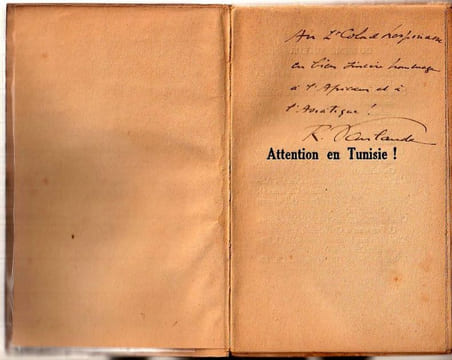 Au Lt Colonel
en bien sincère hommage
à l'Africain et à
l'Asiatique !
R.
Attention en Tunisie !